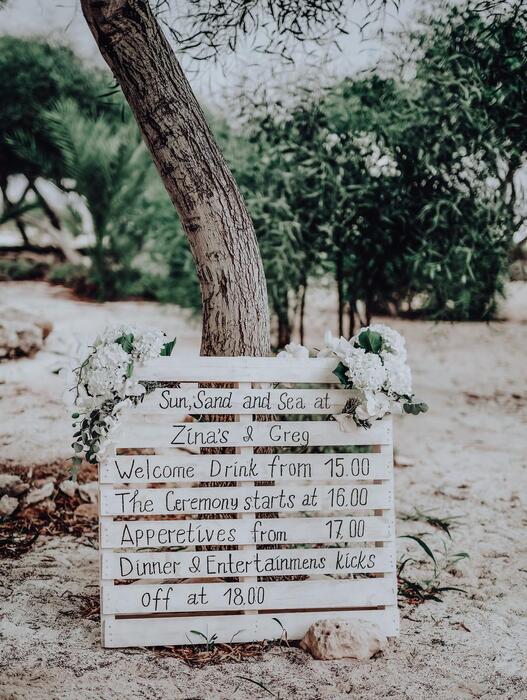 Sun, Sand and Sea at
Zina's & Greg
Welcome Drink from 15.00
The Ceremony starts at 16.00
Apperetives from 17.00
Dinner & Entertainmens kicks
off at 18.00